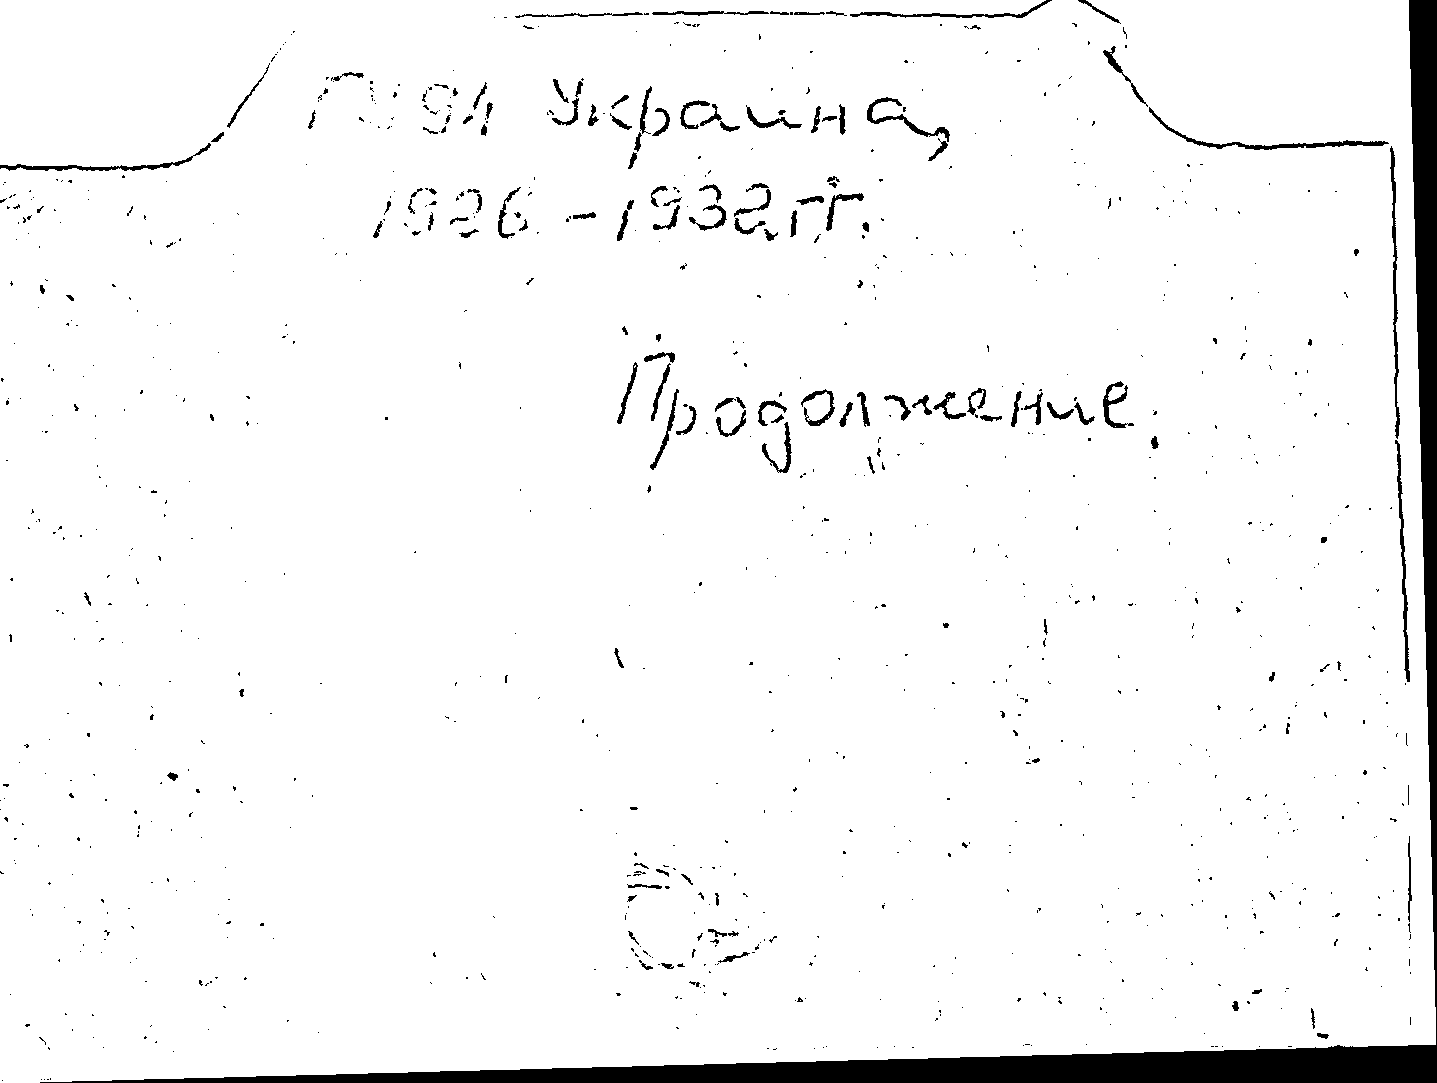 ГУ94 Украина,
1926-1932гг.
Продолжение.